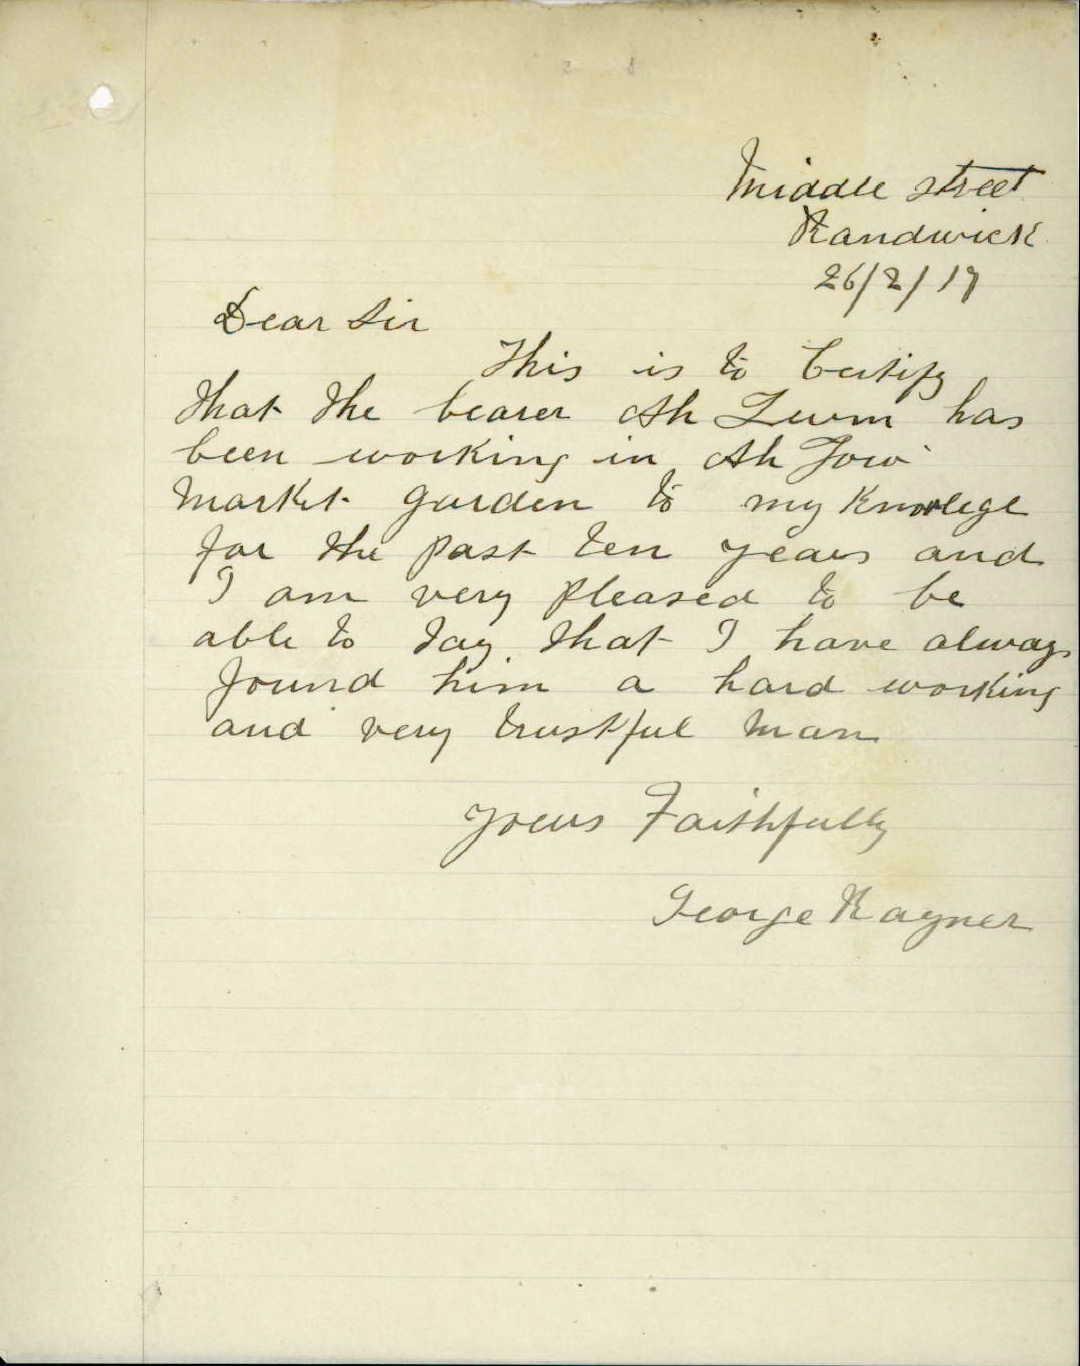 Middle street
Randwick
26/2/17
Dear Sir
This is to Certify
that the bearer Ah Lumm has
been working in Ah Jow
market garden to my Knowlege
for the past ten years and
I am very pleased to be
able to say that I have always
found him a hard working
and very trustful man
Yours Faithfully
George Rayner